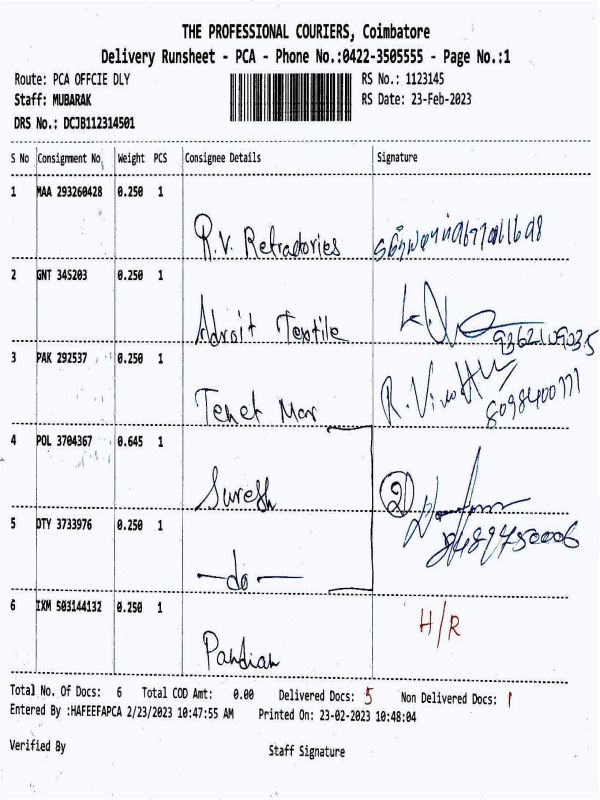 THE PROFESSIONAL COURIERS, Coimbatore
Delivery Runsheet - PCA - Phone No.:0422-3505555 - Page No.:1
Route: PCA OFFCIE DLY
RS No.: 1123145
Staff: MUBARAK
RS Date: 23-Feb-2023
DRS No.: DCJB112314501
S No Consignment No Weight PCS Consignee Details Signature
1 MAA 293260428 0.250 1
R.V. Refractories
2 GNT 345203 0.250 1
Adroit Textile
9362109035
3 PAK 292537 0.250 1
Tenet Mar R. Vino
8098400771
4 POL 3704367 0.645 1
Suresh 2
8489750006
5 OTY 3733976 0.250 1
—do—
6 IXM 503144132 0.250 1 H/R
Pandian
Total No. Of Docs: 6 Total COD Amt: 0.00 Delivered Docs: 5 Non Delivered Docs: 1
Entered By :HAFEEFAPCA 2/23/2023 10:47:55 AM Printed On: 23-02-2023 10:48:04
Verified By Staff Signature